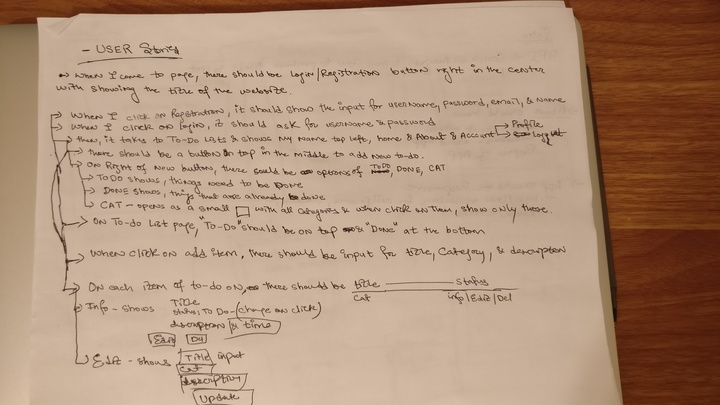 - USER Stories
When I come to page, there should be login/Registration button right in the center
with showing the title of the website.
When I click on Registration, it should show the input for username, password, email, & name
When I click on login, it should ask for username & password
then, it takes to To-Do Lists & shows My Name top left, home & About & Account Profile
logout
there should be a button on top in the middle to add new to-do.
On Right of New button, there sould be options of TODO, DONE, CAT
TODO shows, things need to be Done
DONE shows, things that are already done
CAT - opens as a small with all categories & when click on them, show only these.
On To-do List page, "To-Do" should be on top & "Done" at the bottom
When click on add item, there should be input for title, Category, & description
On each item of to-do on, there should be title status
Cat info/Edit/Del
Info - Shows Title
status: To Do - (change on click)
description & time
Edit Del
Edit - shows Title input
Cat
description
Update